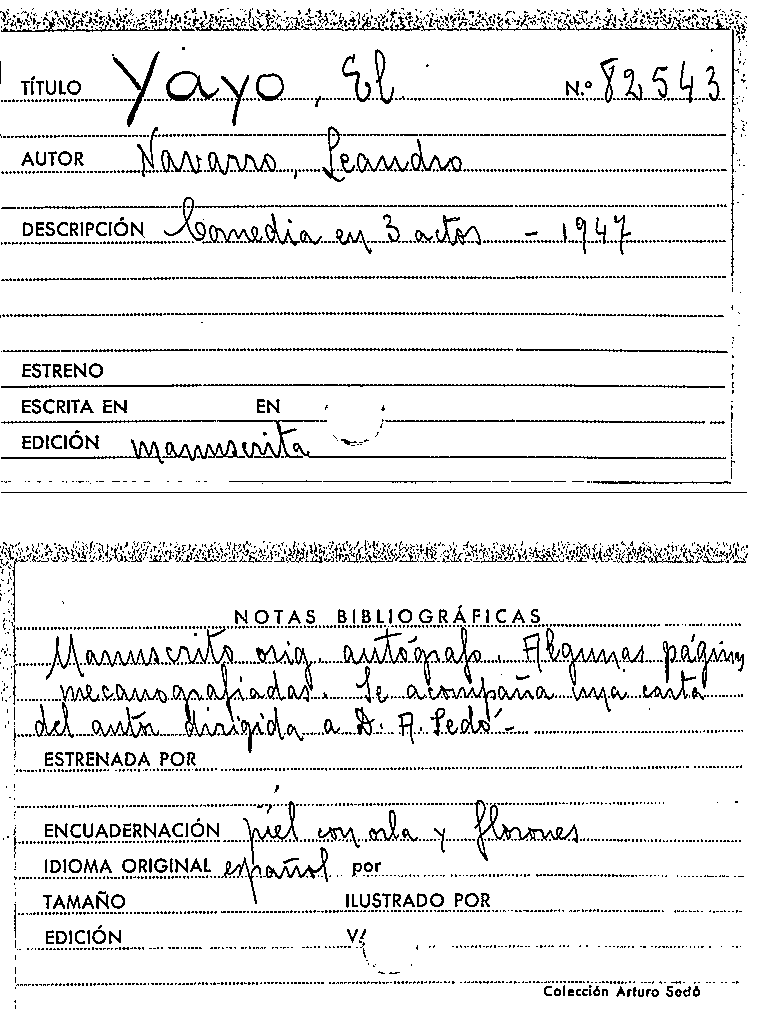 TÍTULO Yayo, El. N.º 82543
AUTOR Navarro, Leandro
DESCRIPCIÓN Comedia en 3 actos - 1947
ESTRENO
ESCRITA EN EN
EDICIÓN manuscrita
NOTAS BIBLIOGRÁFICAS
Manuscrito orig. autógrafo. Algunas páginas
mecanografiadas. Se acompaña una carta
del autor dirigida a D. A. Sedó-
ESTRENADA POR
ENCUADERNACIÓN piel con orla y florones
IDIOMA ORIGINAL español por
TAMAÑO ILUSTRADO POR
EDICIÓN
Colección Arturo Sedó